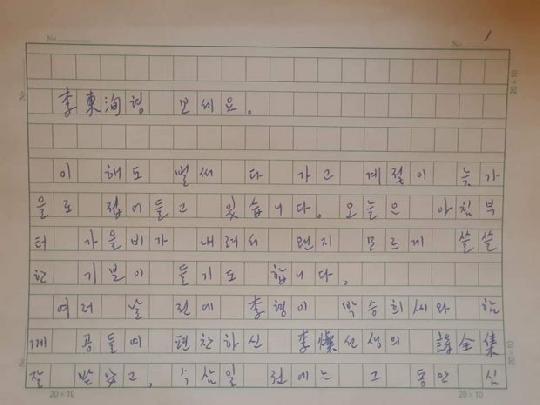 No.
No. 1
李東洵형 보세요.
이 해도 벌써 다 가고 계절이 늦가
을로 접어들고 있습니다. 오늘은 아침부
터 가을비가 내려서 왠지 모르게 쓸쓸
한 기분이 들기도 합니다.
여러 날 전에 李형이 박승희씨와 함
께 공들여 편찬하신 李燦선생의 詩全集
잘 받았고, 수삼일 전에는 그 동안 신
20×10
20×10
20×10
20×10